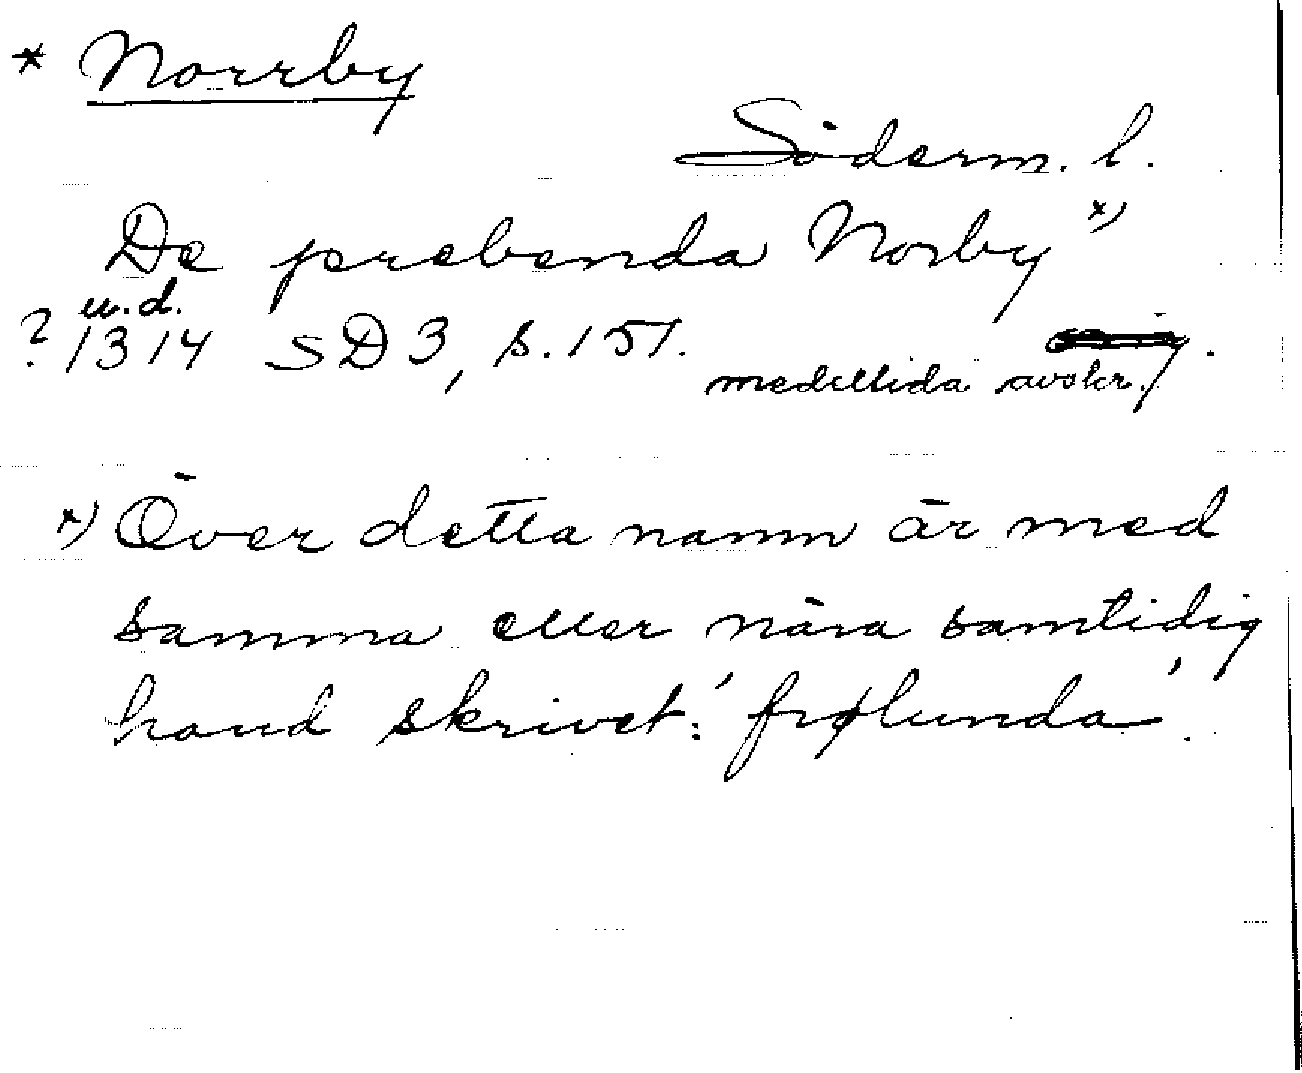 * Norrby
Söderm. l.
De prebenda Norby *)
u.d.
? 1314 SD 3, s. 151.
medeltida avskr.
*) Över detta namn är med
samma eller nära samtidig
hand skrivet: 'frølunda'.